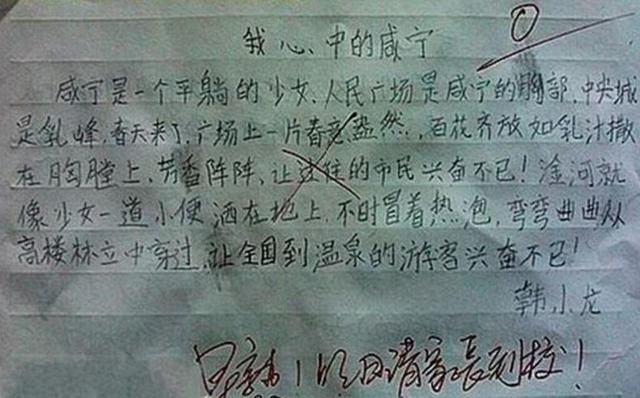 0
我心中的咸宁
咸宁是一个平躺的少女、人民广场是咸宁的胸部,中央城
是乳峰,春天来了,广场上一片春意盎然,百花齐放如乳汁撒
在胸膛上、芳香阵阵、让过往的市民兴奋不已!淦河就
像少女一道小便洒在地上,不时冒着热泡,弯弯曲曲从
高楼林立中穿过,让全国到温泉的游客兴奋不已!
韩小龙
明日请家长到校!